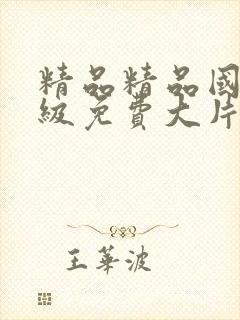 精品精品國
級免費大片
王華波